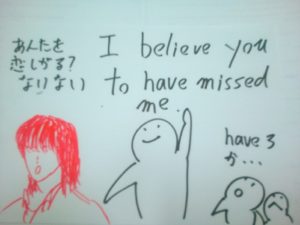 あんたを
恋しがる?
ないない
I believe you
to have missed
me.
have 3
か...